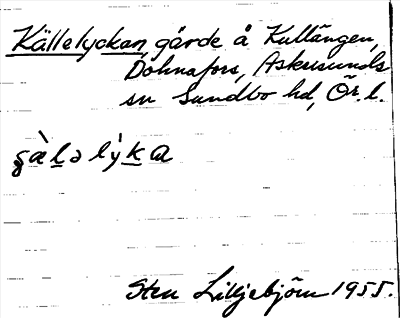 Källelyckan, gärde å Kullängen,
Dohnafors, Askersunds
sn Sundbo hd, Ör. l.
Sten Liljebjörn 1955.